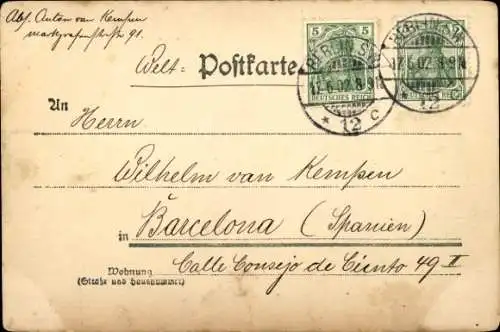 Abs. Anton van Kempen
Markgrafenstraße 91.
Welt- Postkarte
5 5
DEUTSCHES REICH
BERLIN S.W.
17.6.02.8-9N.
* 12 c
BERLIN S.W.
17.6.02.8-9N.
12
An
Herrn
Wilhelm van Kempen
in Barcelona (Spanien)
Wohnung
(Straße und Hausnummer)
Calle Consejo de Ciento 49 II